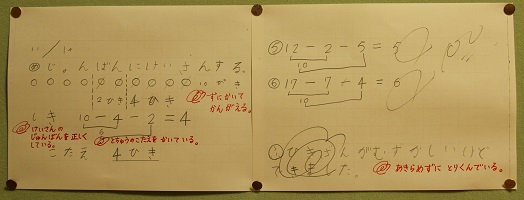 11/10
め じゅんばんにけいさんする。
○○○○○○○○○○ 10ぴき
2ひき 4ひき
め ずにかいて
かんがえる。
しき 10-4-2=4
6
め けいさんの
じゅんばんを正しく
している。
め とちゅうのこたえをかいている。
こたえ 4ひき
⑤ 12-2-5=5
10
⑥ 17-7-4=6
10
ひきざんがむずかしいけど
できました。
め あきらめずにとりくんでいる。